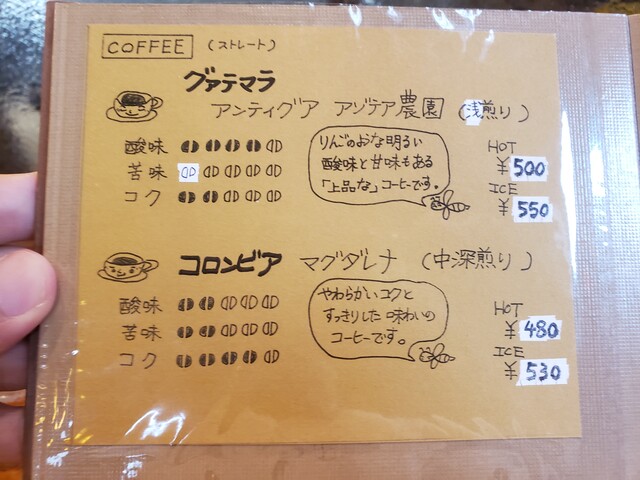 COFFEE (ストレート)
グァテマラ
アンティグア アゾテア農園 (浅煎り)
酸味
苦味
コク
りんごのような明るい
酸味と甘味もある
「上品な」コーヒーです。
HOT
¥500
ICE
¥550
コロンビア マグダレナ (中深煎り)
酸味
苦味
コク
やわらかいコクと
すっきりした味わいの
コーヒーです。
HOT
¥480
ICE
¥530